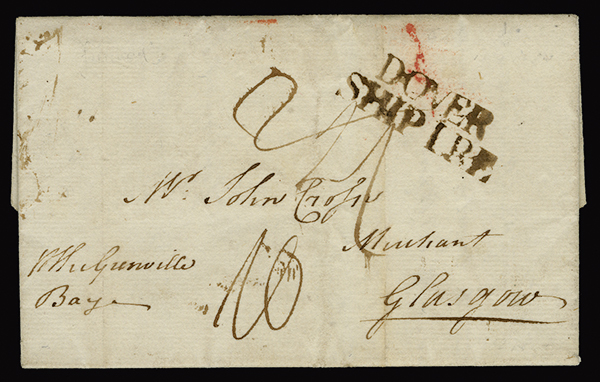 DOVER
SHIP LRE
Mr. John Croſs
Merchant
Glasgow
Grenville
Bay